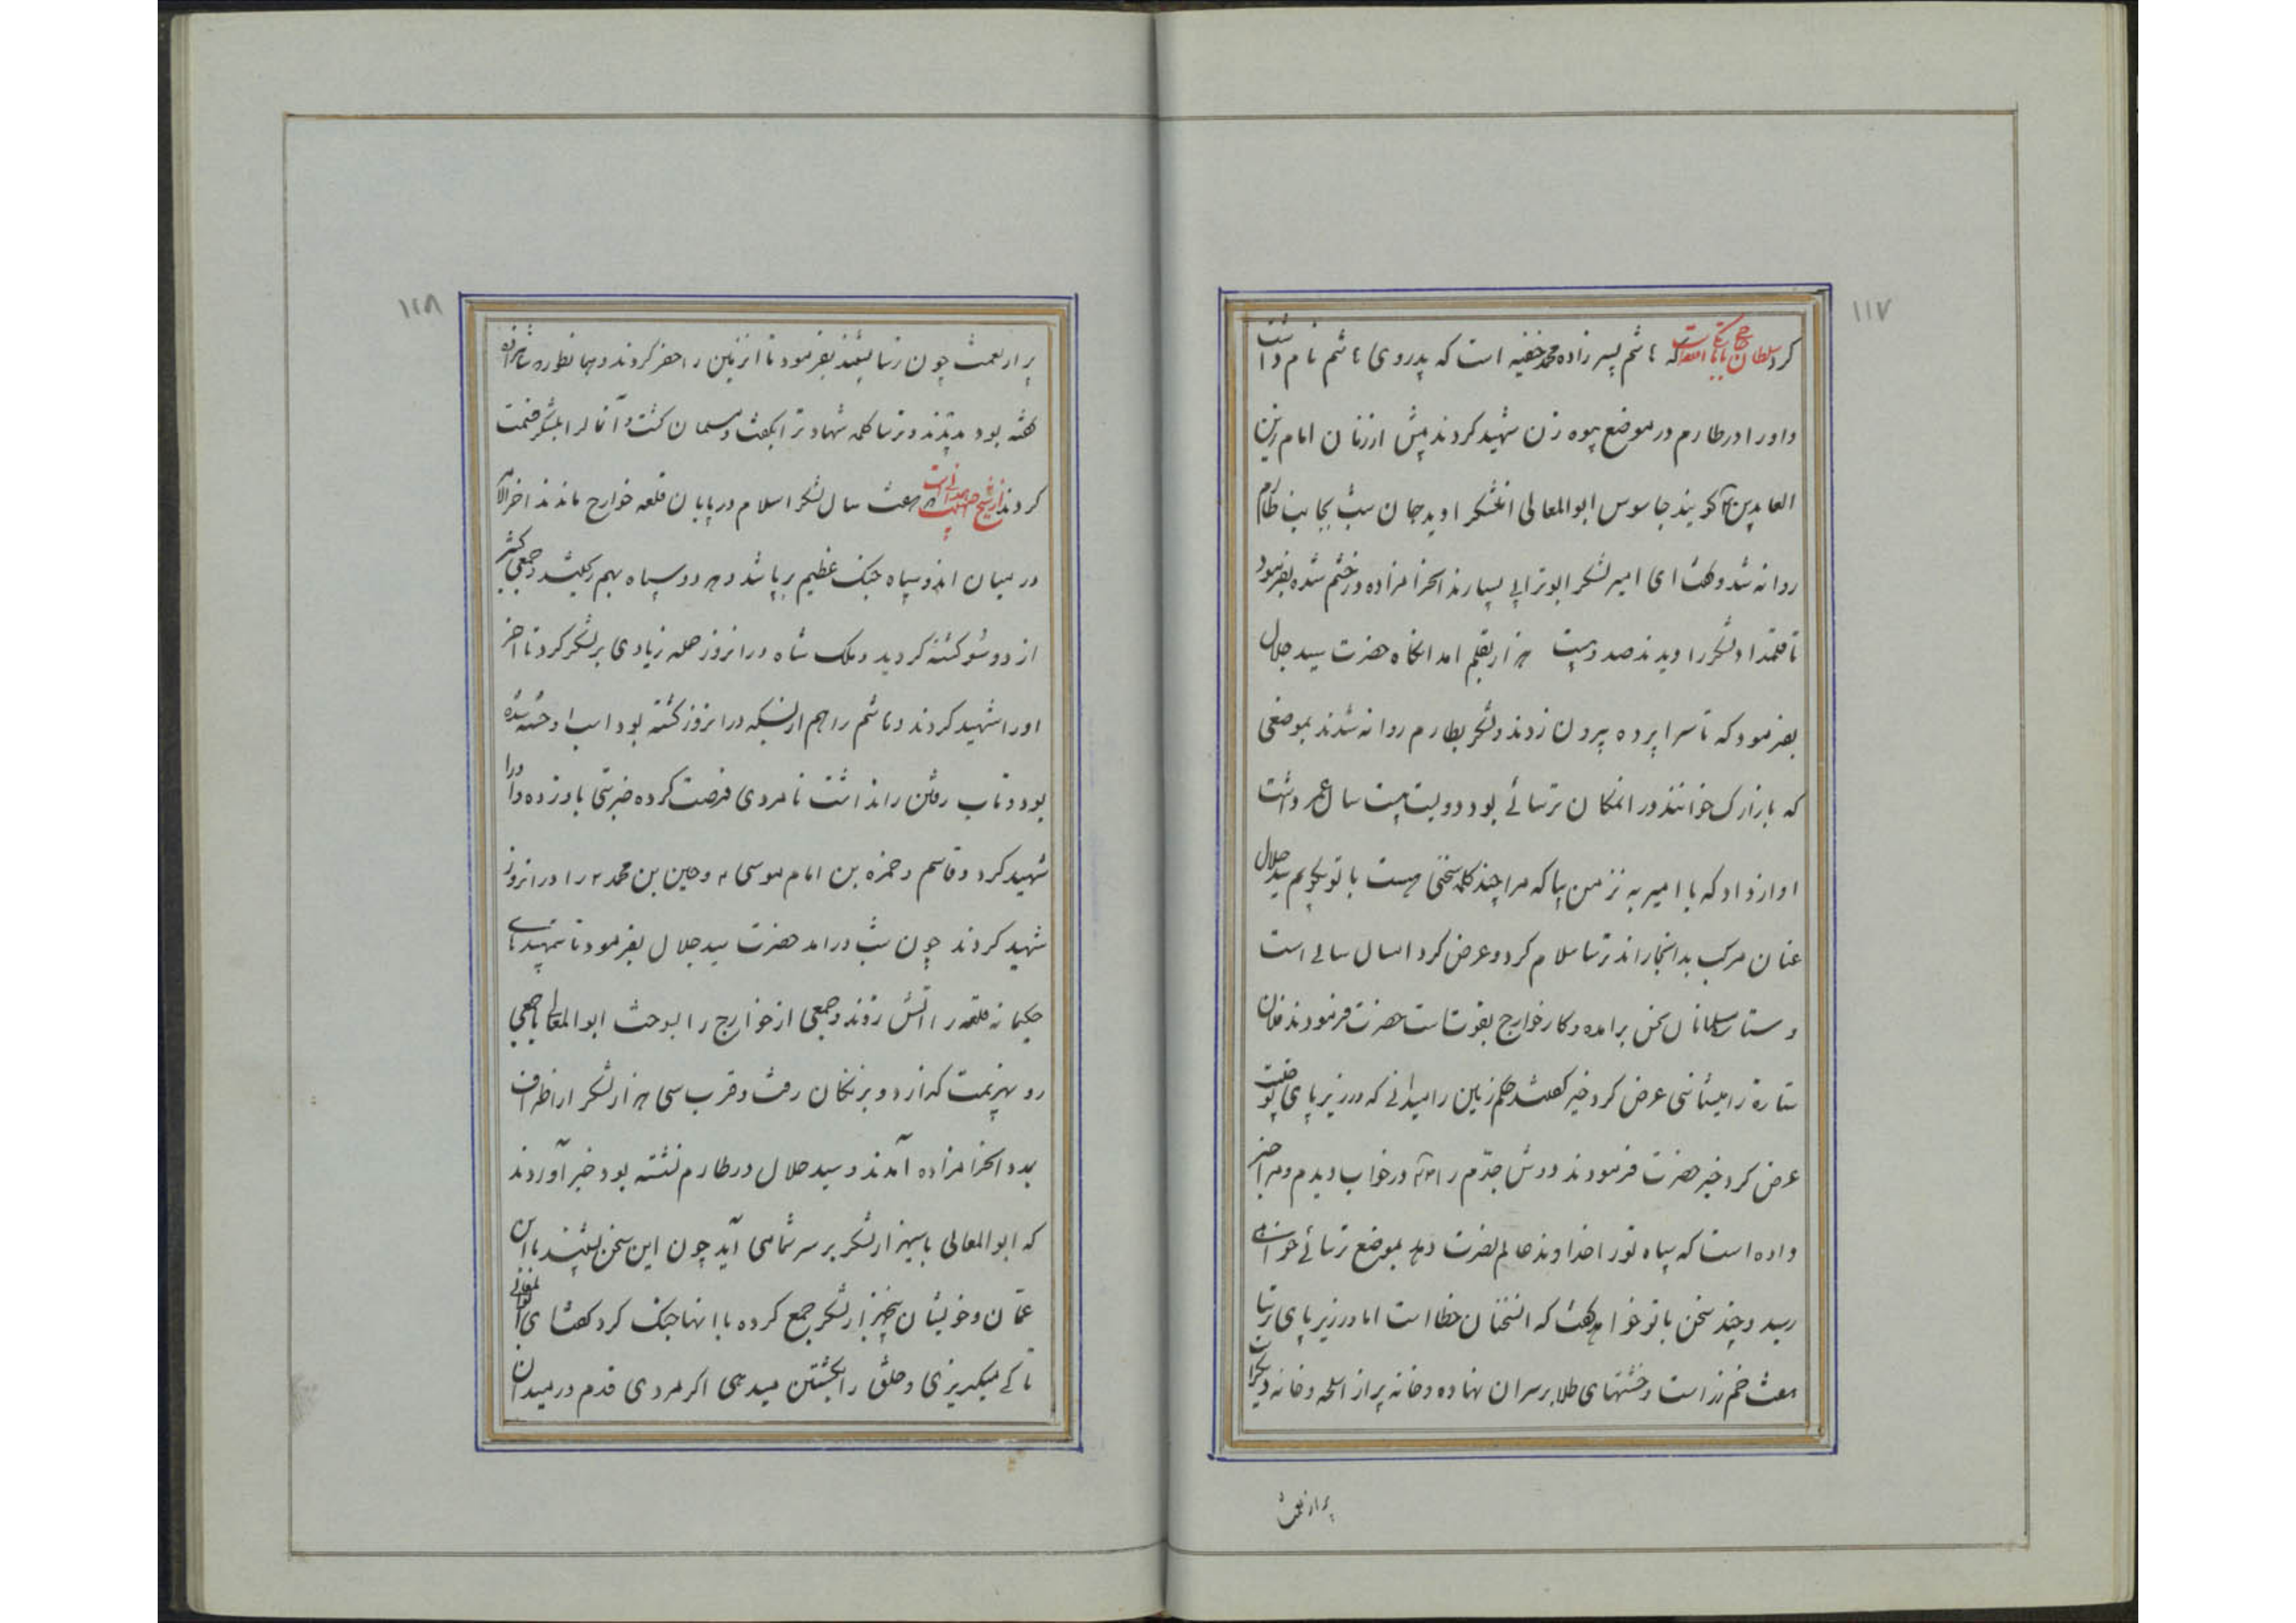 ۱۱۷
کرد سلطان که هاشم پسر زاده محمد حنفیه است که پدر وی هاشم نام داشت
و او را در طارم در موضع پیوه زن شهید کردند پیش از زمان امام زین
العابدین گویند جاسوس ابوالمعالی لشکر او بدید شب بجانب طارم
روانه شد و گفت ای امیر لشکر ابوترابی بسیارند انحرامزاده در خشم شده بفرمود
تا قلمداد لشکر را دیدند صد و بیست هزار بقلم امد انگاه حضرت سید جلال
بفرمود که تا سراپرده بیرون زدند و لشکر بطارم روانه شدند بموضعی
که بازارک خوانند در انمکان ترسائی بود دویست بیست سال عمر داشت
اواز داد که یا امیر به نزد من بیا که مرا چند کلمه سخنی هست با تو بگویم سید جلال
عنان مرکب بدانجا راند ترسا سلام کرد و عرض کرد امسال سالی است
و ستاره مسلمانان نحس برامده و کار خوارج بقوت است حضرت فرمودند فلان
ستاره را میشناسی عرض کرد خیر گفت حکم زمین را میدانی که در زیر پای تو چیست
عرض کرد خیر حضرت فرمودند دوش جدّم را در خواب دیدم و مرا خبر
داده است که سپاه تو را خداوند عالم نصرت دهد بموضع ترسائی خواهی
رسید و چند سخن با تو خواهد گفت که انسخنان خطا است اما در زیر پای ترسا
هفت خم زر است و خشتهای طلا بر سر ان نهاده و خانه پر از اسلحه و خانه دیگر
پر از نعمت
۱۱۸
پر از نعمت چون ترسا بشنید بفرمود تا انزمین را حفر کردند و بهمانطور که شاهزاده
گفته بود بدیدند و ترسا کلمه شهادت را بگفت و مسلمان گشت و آنمالرا بلشکر قسمت
کردند هفت سال لشکر اسلام در پایان قلعه خوارج ماندند اخرالامر
در میان اندو سپاه جنک عظیم برپا شد و هر دو سپاه بهم ریختند و جمعی کثیر
از دو سو کشته گردید و ملک شاه در انروز حمله زیادی بر لشکر کرد تا اخر
او را شهید کردند و هاشم را هم از بسکه در انروز کشته بود اسب او خسته شده
بود و تاب رفتن را نداشت نامردی فرصت کرده ضربتی باو زده و او را
شهید کرد و قاسم و حمزه بن امام موسی و حسین بن محمد را در انروز
شهید کردند چون شب درامد حضرت سید جلال بفرمود تا تمهیدهای
حکیمانه قلعه را اتش زدند و جمعی از خوارج را بسوخت ابوالمعالی با جمعی
رو بهزیمت گذارد و بزنکان رفت و قرب سی هزار لشکر از اطراف
بمدد انحرامزاده آمدند و سید جلال در طارم نشسته بود خبر آوردند
که ابوالمعالی با سیهزار لشکر بر سر شما می آید چون این سخن بشنید با ان
عمّان و خویشان پنجهزار لشکر جمع کرده با انها جنک کرد گفت ای ابوالمعالی
تا کی میگریزی و خلق را بکشتن میدهی اگر مردی قدم در میدان